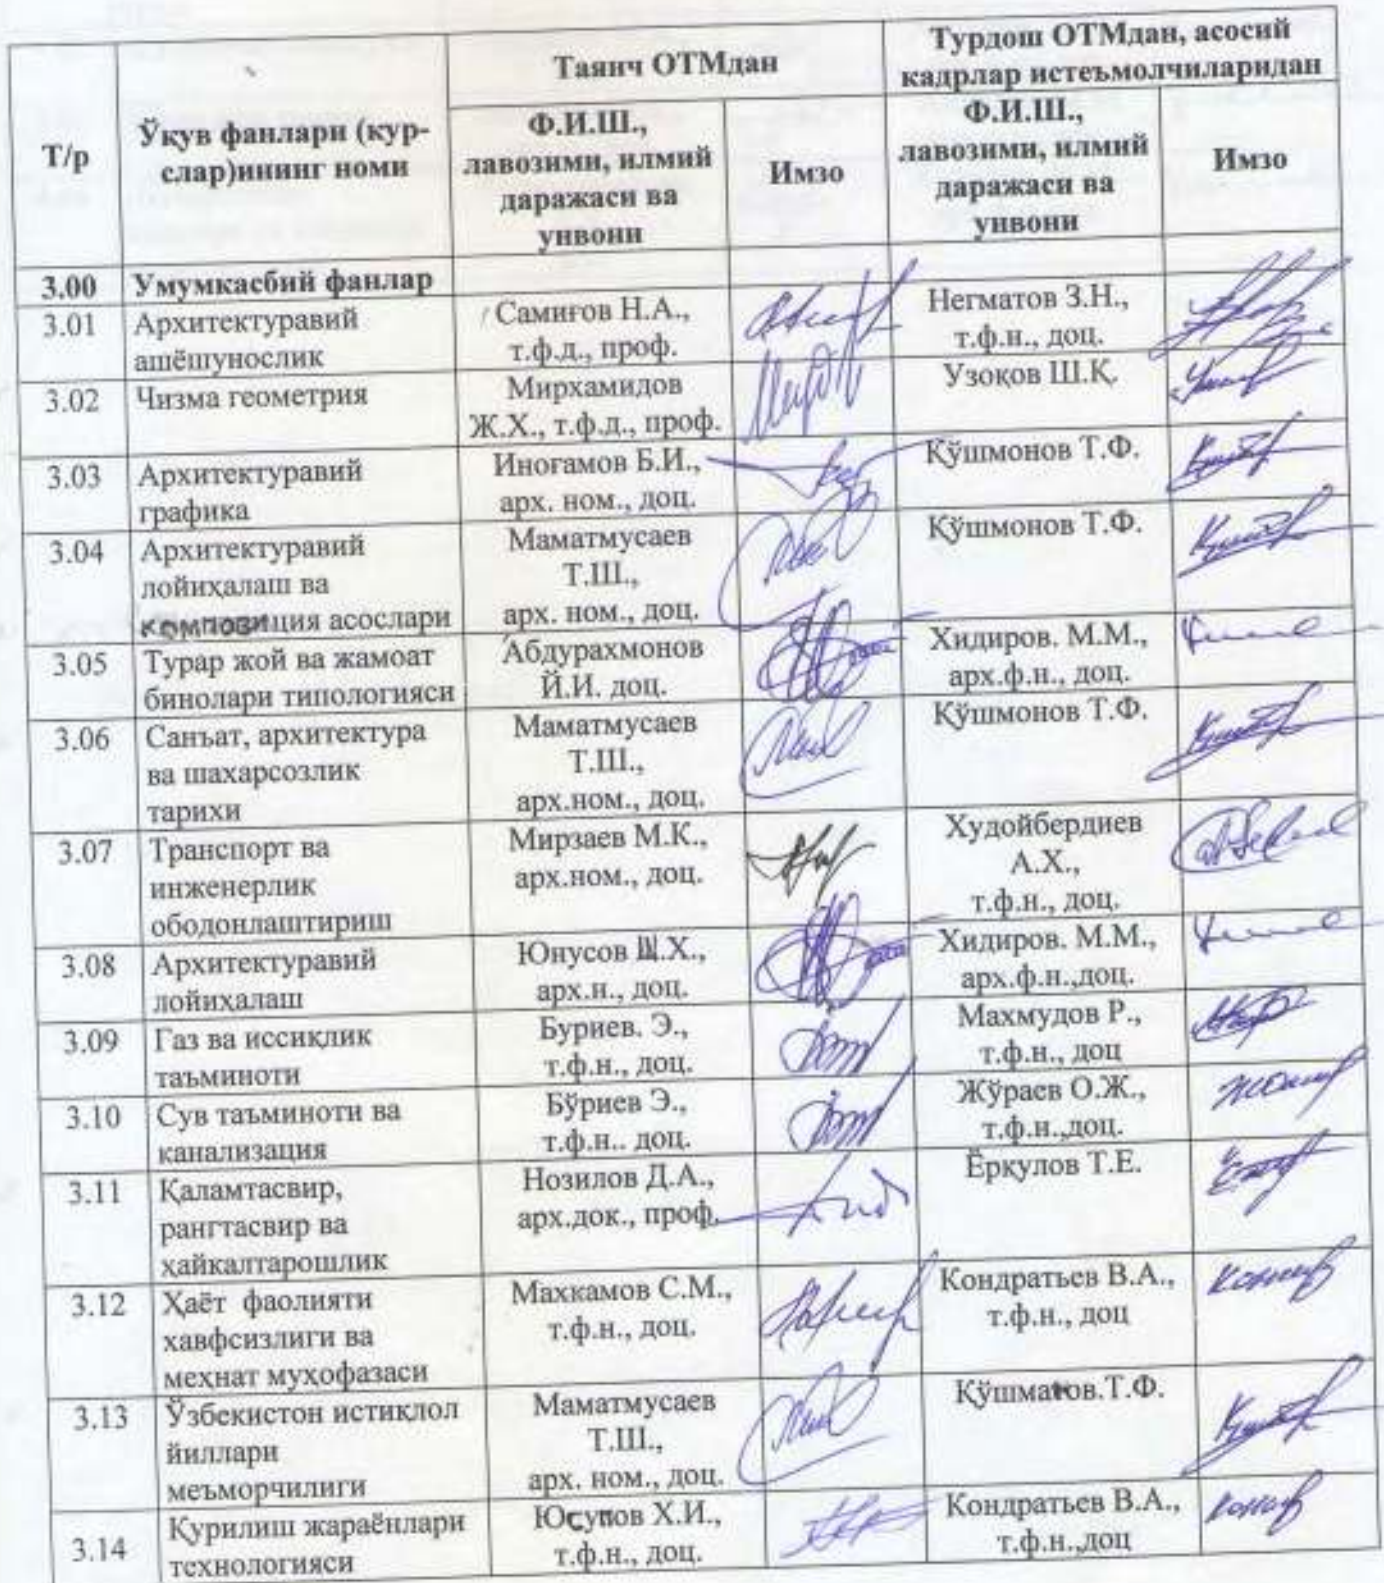 Т/р
Ўқув фанлари (кур-
слар)ининг номи
Таянч ОТМдан
Турдош ОТМдан, асосий
кадрлар истеъмолчиларидан
Ф.И.Ш.,
лавозими, илмий
даражаси ва
унвони
Имзо
Ф.И.Ш.,
лавозими, илмий
даражаси ва
унвони
Имзо
3.00 Умумкасбий фанлар
3.01
Архитектуравий
ашёшунослик
Самиғов Н.А.,
т.ф.д., проф.
Негматов З.Н.,
т.ф.н., доц.
3.02
Чизма геометрия
Мирхамидов
Ж.Х., т.ф.д., проф.
Узоқов Ш.Қ.
3.03
Архитектуравий
графика
Иногамов Б.И.,
арх. ном., доц.
Қўшмонов Т.Ф.
3.04
Архитектуравий
лойиҳалаш ва
композиция асослари
Маматмусаев
Т.Ш.,
арх. ном., доц.
Қўшмонов Т.Ф.
3.05
Турар жой ва жамоат
бинолари типологияси
Абдурахмонов
Й.И. доц.
Хидиров. М.М.,
арх.ф.н., доц.
3.06
Санъат, архитектура
ва шахарсозлик
тарихи
Маматмусаев
Т.Ш.,
арх.ном., доц.
Қўшмонов Т.Ф.
3.07
Транспорт ва
инженерлик
ободонлаштириш
Мирзаев М.К.,
арх.ном., доц.
Худойбердиев
А.Х.,
т.ф.н., доц.
3.08
Архитектуравий
лойиҳалаш
Юнусов Ш.Х.,
арх.н., доц.
Хидиров. М.М.,
арх.ф.н.,доц.
3.09
Газ ва иссиқлик
таъминоти
Буриев. Э.,
т.ф.н., доц.
Махмудов Р.,
т.ф.н., доц
3.10
Сув таъминоти ва
канализация
Бўриев Э.,
т.ф.н.. доц.
Жўраев О.Ж.,
т.ф.н.,доц.
3.11
Қаламтасвир,
рангтасвир ва
ҳайкалтарошлик
Нозилов Д.А.,
арх.док., проф.
Ёрқулов Т.Е.
3.12
Ҳаёт фаолияти
хавфсизлиги ва
меҳнат муҳофазаси
Махкамов С.М.,
т.ф.н., доц.
Кондратьев В.А.,
т.ф.н., доц
3.13
Ўзбекистон истиқлол
йиллари
меъморчилиги
Маматмусаев
Т.Ш.,
арх. ном., доц.
Қўшматов.Т.Ф.
3.14
Қурилиш жараёнлари
технологияси
Юсупов Х.И.,
т.ф.н., доц.
Кондратьев В.А.,
т.ф.н.,доц